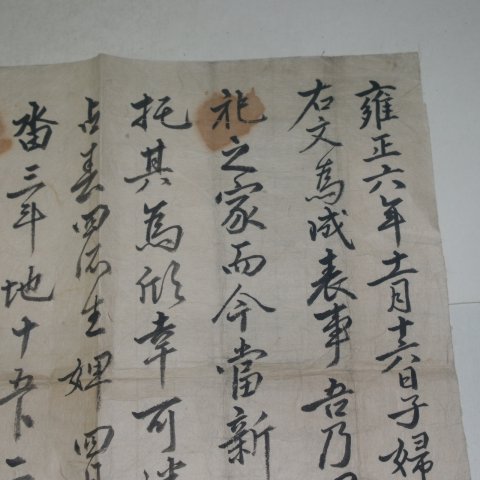 雍正六年十一月十六日子婦
右文為成表事吾乃
祀之家而今當新
托其為欣幸可
占春四所生婢四
畓三斗地十五卜二